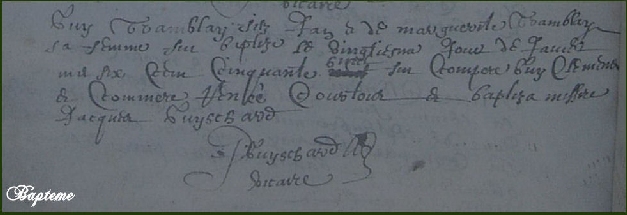 vicaire
Guy Tramblay filz Jan & de marguerite Tramblay
sa femme fut baptize le vingtiesme Jour de Janvier
mil six Cens Cinquante fut Compere Guy
& Commere Renée & baptiza missire
Jacques Guyschard
Guyschard
vicaire
Bapteme